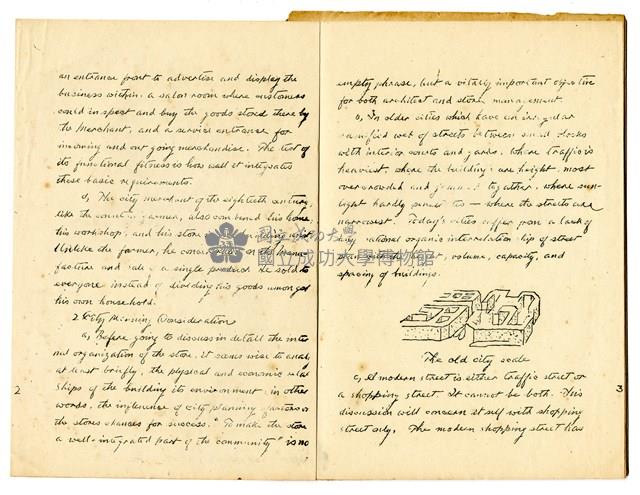 an entrance front to advertise and display the
business within, a salon room where customers
could inspect and buy the goods stored there by
the Merchant, and a service entrance for
incoming and out going merchandise. The test of
its functional fitness is how well it integrates
these basic requirements.
d, The city merchant of the eighteeth century,
like the country farmer, also combined his home,
his workshop, and his store in one building
Unlike the farmer, he concentrated on the Manu-
facture and sale of a single product. He sold to
everyone instead of dividing his goods amongst
his own household.
2 City Planning Consideration
a, Before going to discuss in detail the inter
nal organization of the store, it seems wise to analy
at least briefly, the physical and economic relat
ships of the building its environment, in other
words, the influence of city planning factors on
the stores chances for success. "To make the store
a well-integrated part of the community" is no
2
empty phrase, but a vitally important objective
for both architect and store management.
b, In older cities which have an irregular
ramified web of streets between small blocks
with interior courts and yards, where traffic is
heaviest, where the buildings are height, most
overcrowded and jammed together, where sun-
light hardly pierces to — where the streets are
narrowest. Today's cities suffer from a lack of
any rational organic interrelation ship of street
volume, capacity, and
spacing of buildings.
The old city scale
c, A modern street is either traffic street or
a shopping street. It cannot be both. This
discussion will concern itself with shopping
street only. The modern shopping street has
3
國立成功大學
國立成功大學博物館